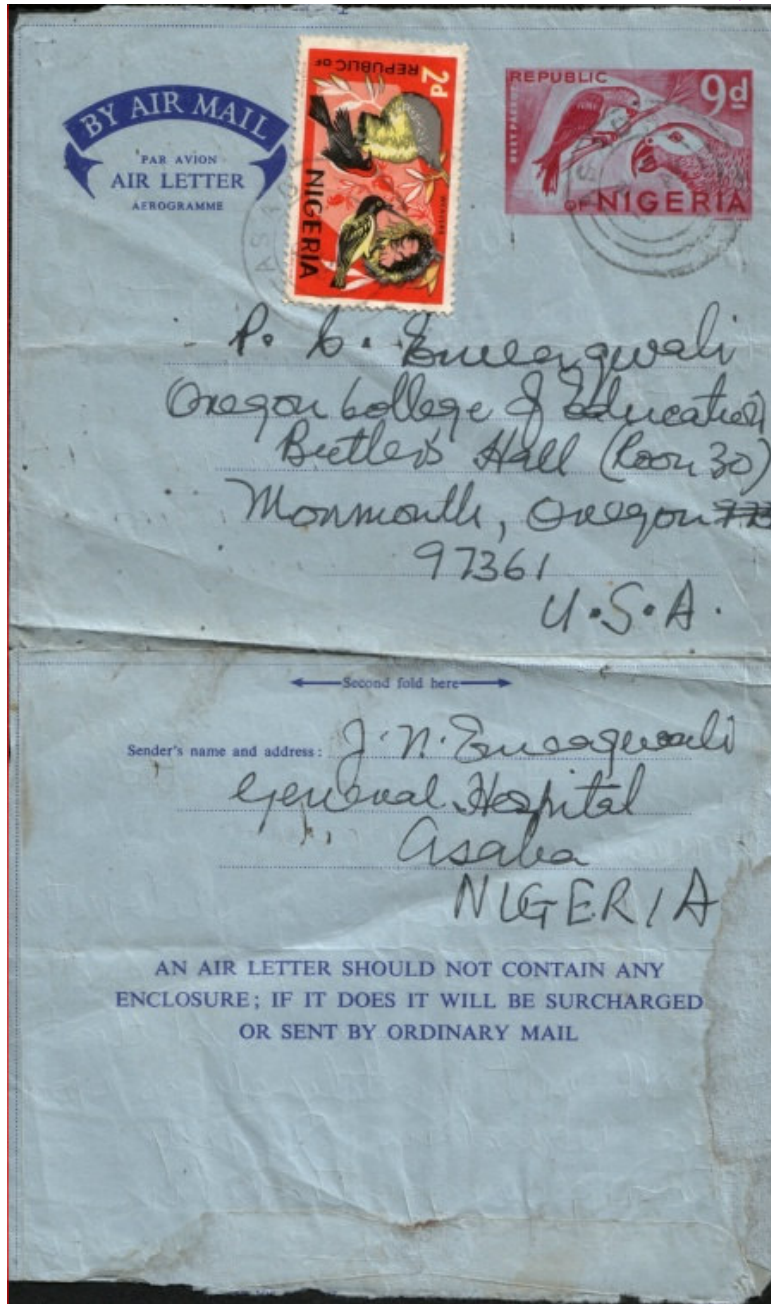 BY AIR MAIL
PAR AVION
AIR LETTER
AEROGRAMME
REPUBLIC OF
2d
NIGERIA
WEAVERS
REPUBLIC
9d
GREY PARROT
OF NIGERIA
P. C. Emeagwali
Oregon College of Education
Butler's Hall (Room 30)
Monmouth, Oregon
97361
U.S.A.
Second fold here
Sender's name and address: J. N. Emeagwali
General Hospital
Asaba
NIGERIA
AN AIR LETTER SHOULD NOT CONTAIN ANY
ENCLOSURE; IF IT DOES IT WILL BE SURCHARGED
OR SENT BY ORDINARY MAIL